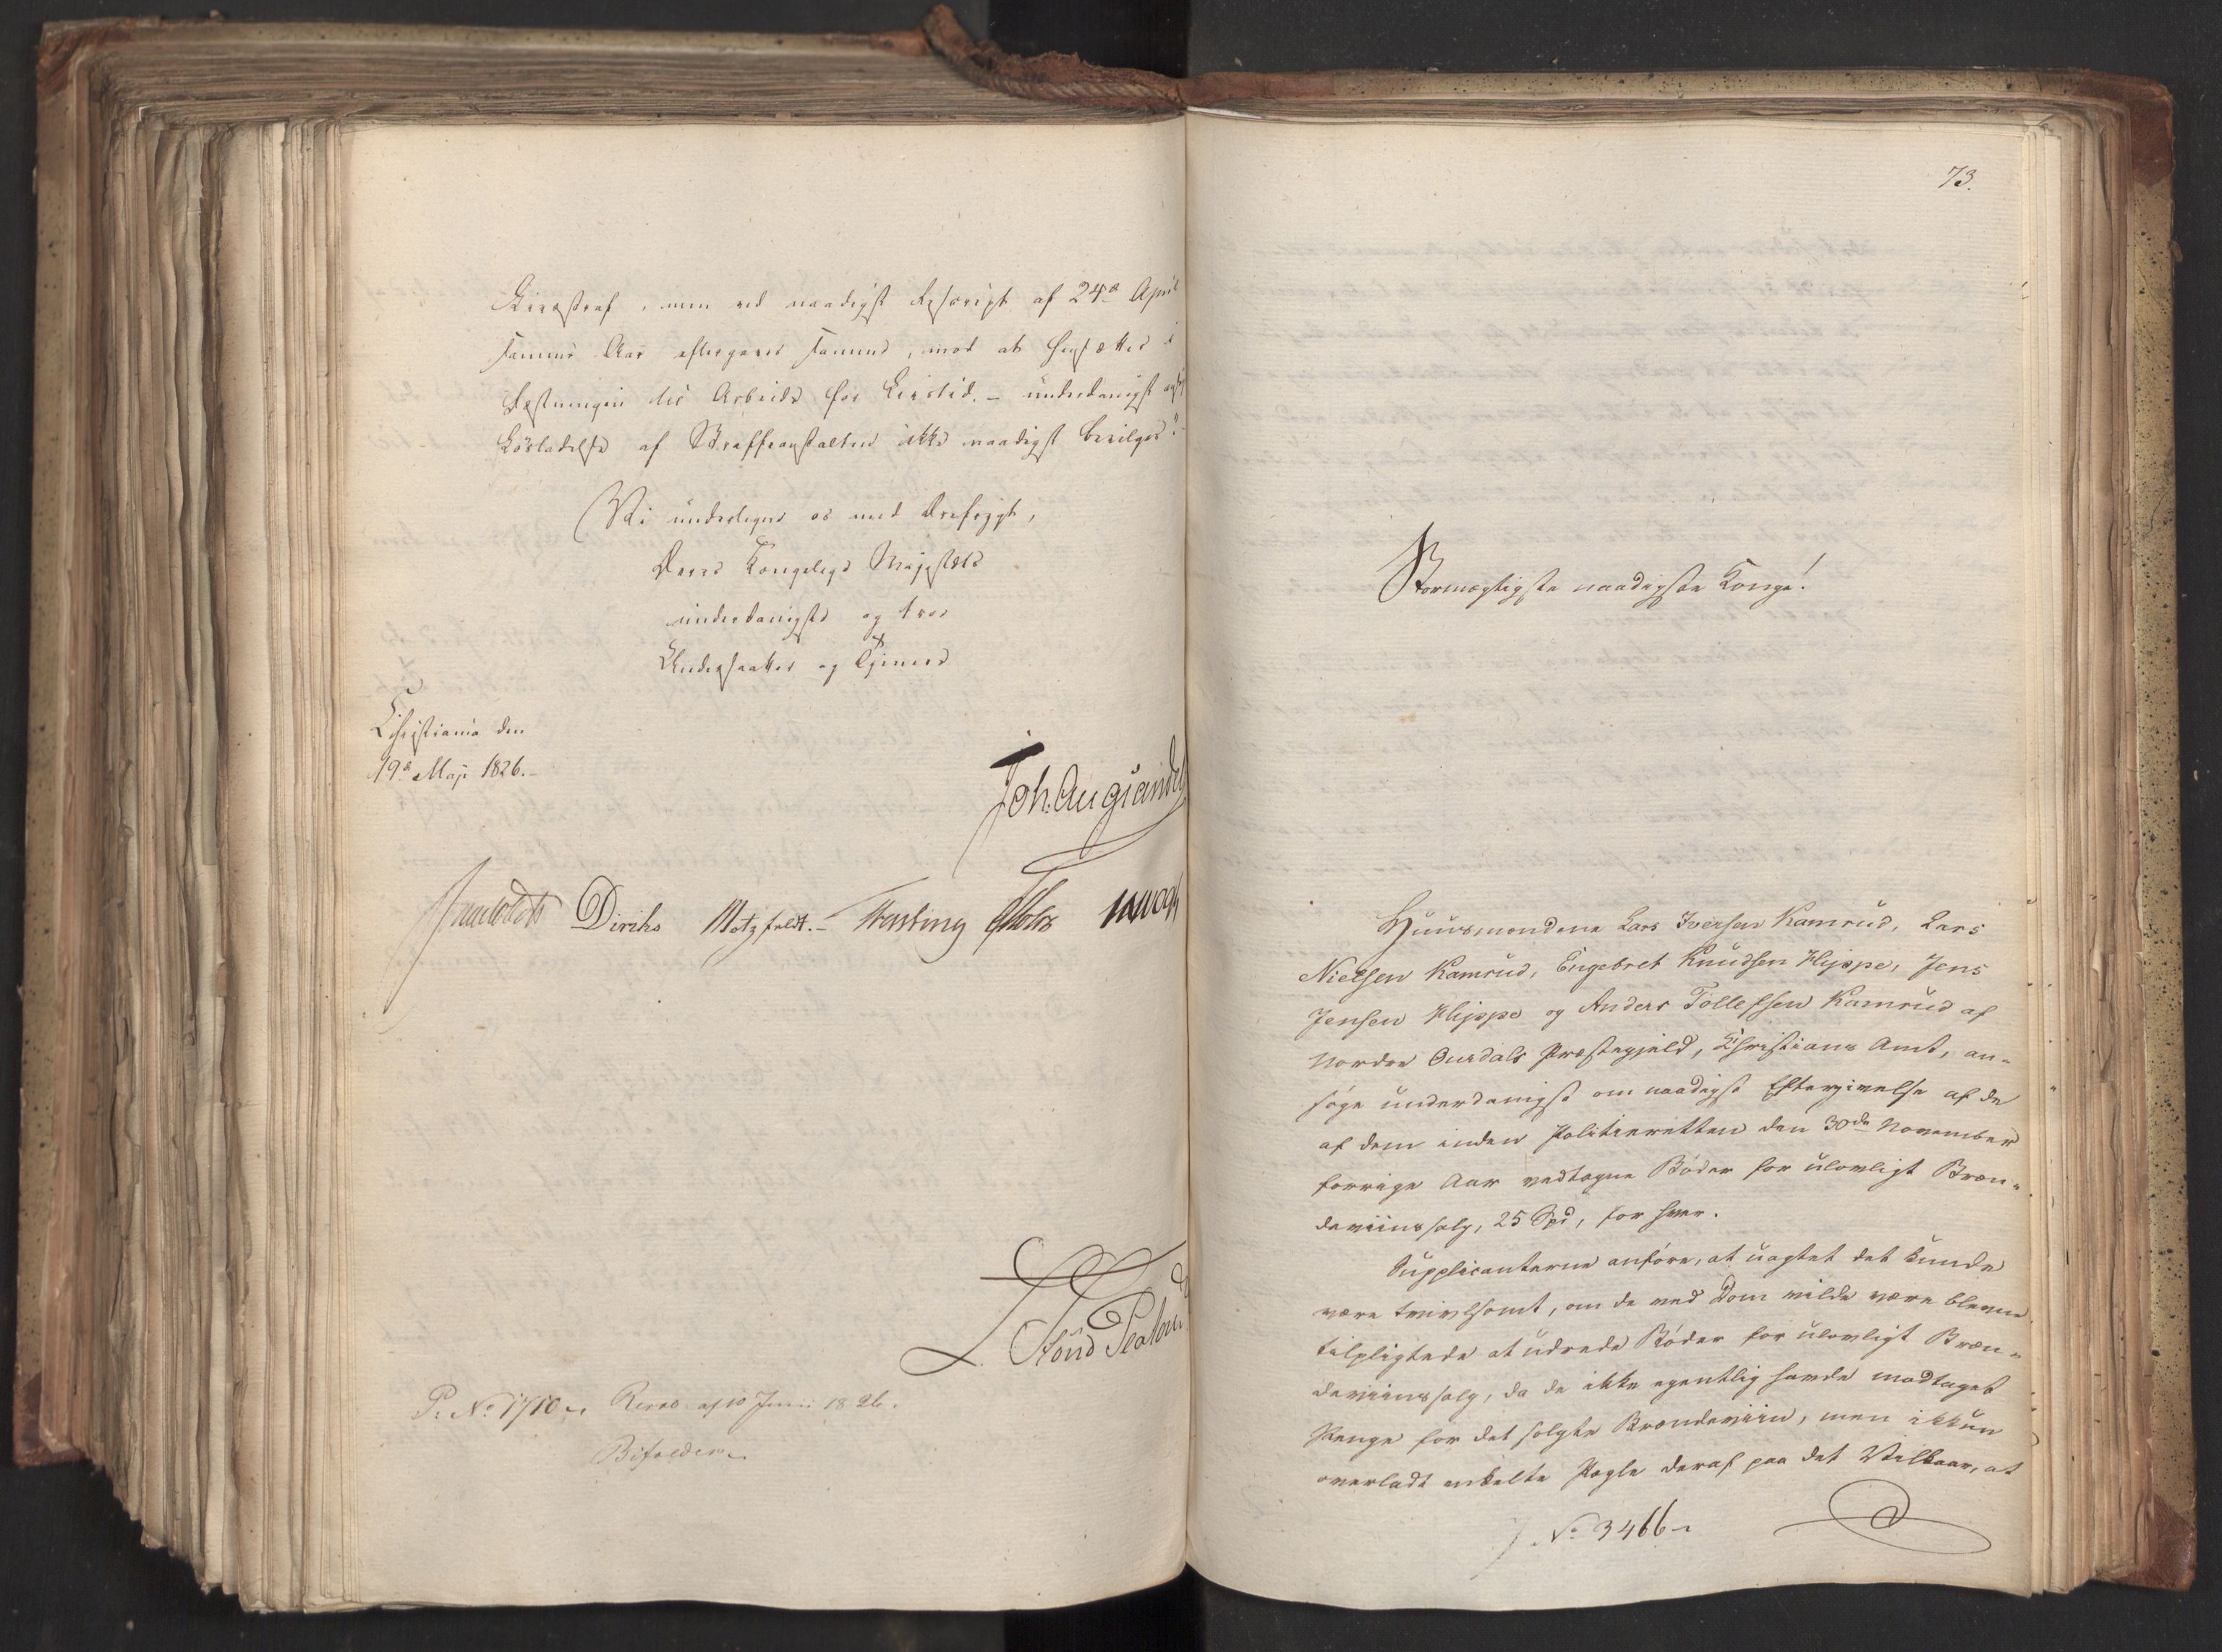 Livsstraf, men ved naadigst Rescript af 24de April
samme Aar eftergaves samme, mod at hensættes i
Fæstningen til Arbeide for Livstid. – underdanigst
Løsladelse af Straffeanstalten ikke naadigst bevilges."
Vi underlegne os med Ærefrygt,
Deres Kongelige Majestæts
underdanigste og troe
Undersaatter og Tjenere
Christiania den
19de Maji 1826.–
Joh. Aug Sandels
Diriks Motzfeldt.– Fasting Holst
P. No 1710 Resol. af 10 Juni 1826.
Bifaldes
73.
Stormægtigste naadigste Konge!
Huusmændene Lars Iversen Kamrud, Lars
Nielsen Kamrud, Engebret Knudsen Hippe, Jens
Jensen Hippe og Anders Tollefsen Kamrud af
Nordre Aurdals Præstegjeld, Christians Amt, an-
søge underdanigst om naadigst Eftergivelse af de
af dem inden Politieretten den 30de November
forrige Aar vedtagne Bøder for ulovligt Bræn-
deviinssalg, 25 Spd, for hver.
Supplicanterne anføre, at uagtet det kunde
være tvivlsomt, om de ved Dom vilde være blevne
tilpligtede at udrede Bøder for ulovligt Bræn-
deviinssalg, da de ikke egentlig havde modtaget
Penge for det solgte Brændeviin, men ikkun
overladt enkelte Pægle deraf paa det Vilkaar, at
J. No 3466